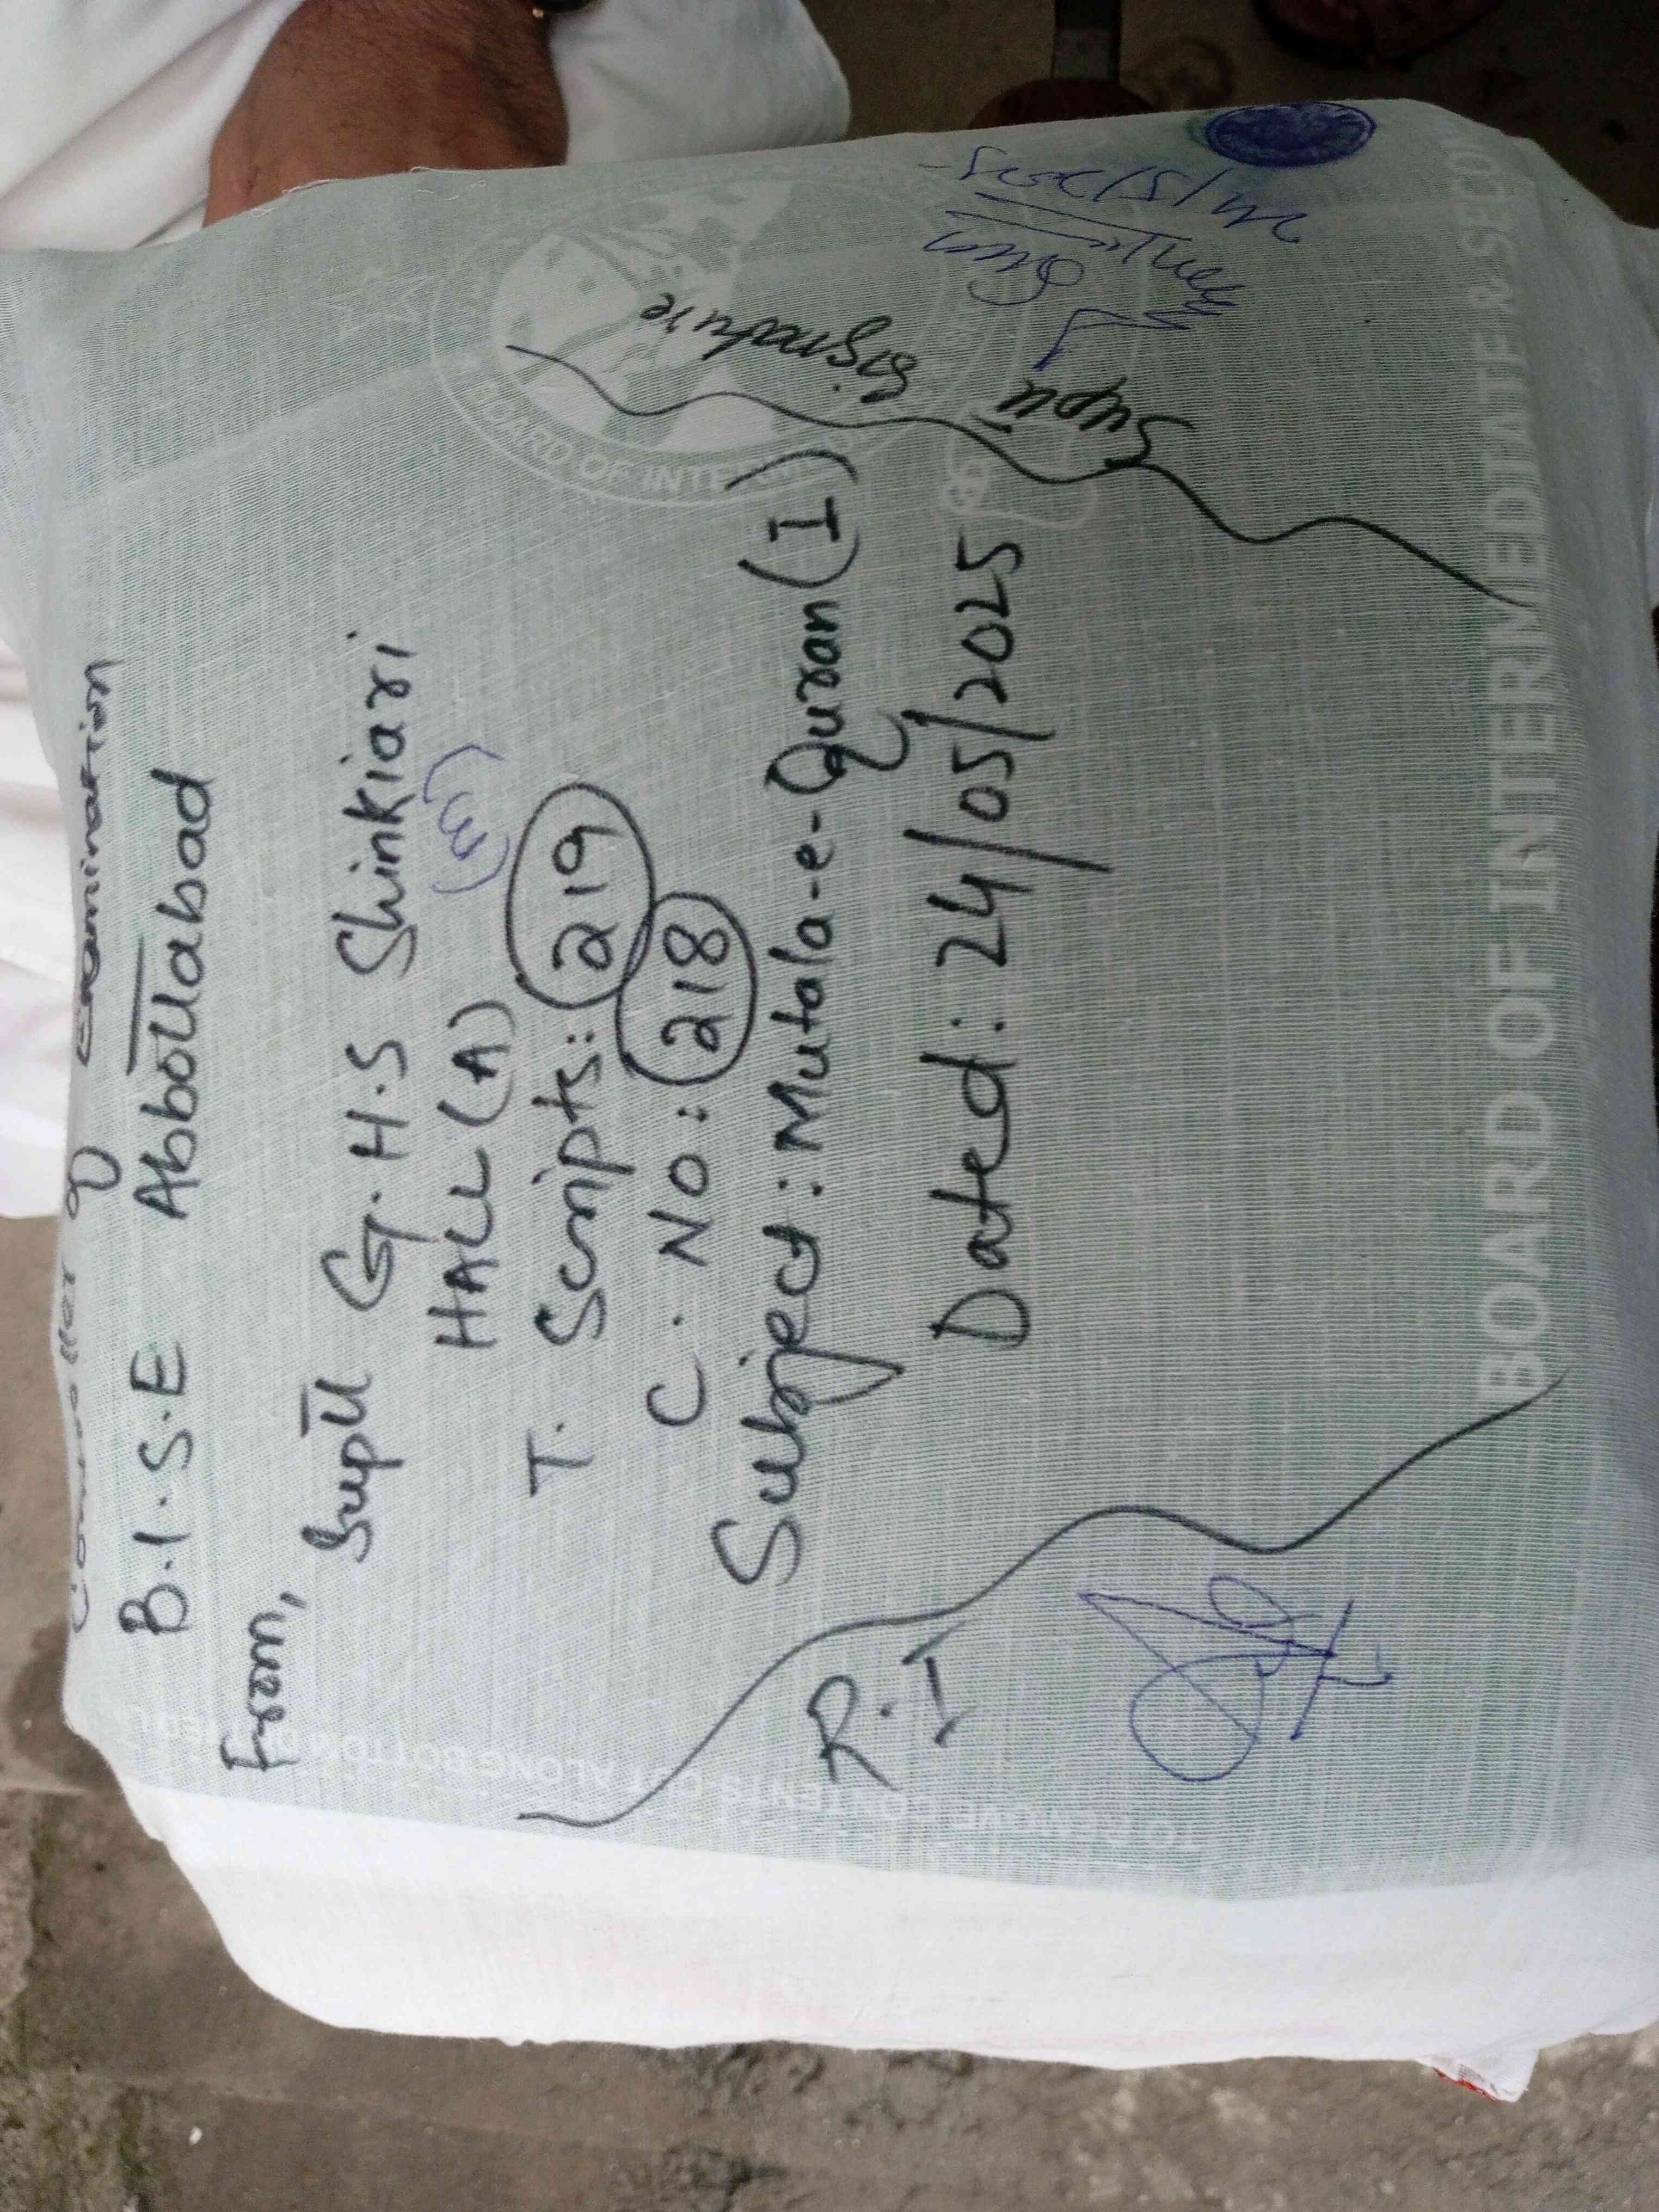 Controller of Examination
B.I.S.E Abbottabad
From,
Suptt G.H.S Shinkiari
HALL (A) (M)
T. Scripts: 219
C. No: 218
Subject: Mutala-e-Quran (I)
Dated: 24/05/2025
R.I
Suptt
Signature
24/5/2025
BOARD OF INTERMEDIATE & SECON
BOARD OF INTE
TO REMOVE CONTENTS CUT ALONG BOTTOM